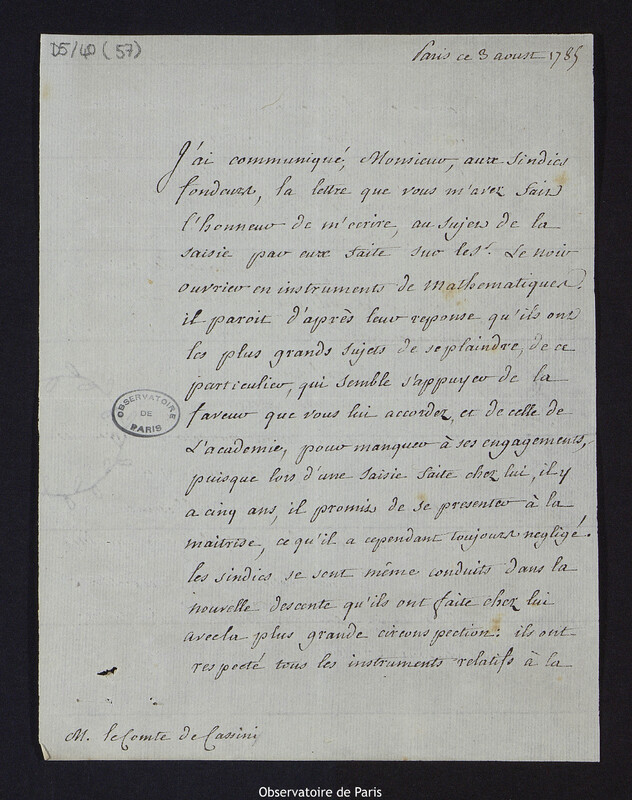 D5/40 (57)
Paris ce 3 aoust 1785
J'ai communiqué, Monsieur, aux Sindics
fondeurs, la lettre que vous m'avez fait
l'honneur de m'écrire, au sujet de la
saisie par eux faite sur les. Le noir
ouvrier en instruments de Mathematiques.
il paroit d'après leur reponse qu'ils ont
les plus grands sujets de se plaindre, de ce
particulier, qui semble s'appuyer de la
faveur que vous lui accordez, et de celle de
L'academie, pour manquer à ses engagements,
puisque lors d'une saisie faite chez lui, il y
a cinq ans, il promis de se presenter à la
maitrise, ce qu'il a cependant toujours negligé.
les sindics se sont même conduits dans la
nouvelle descente qu'ils ont faite chez lui
avec la plus grande circonspection. ils ont
respecté tous les instruments relatifs à la
M. le Comte de Cassini
OBSERVATOIRE
DE
PARIS
Observatoire de Paris